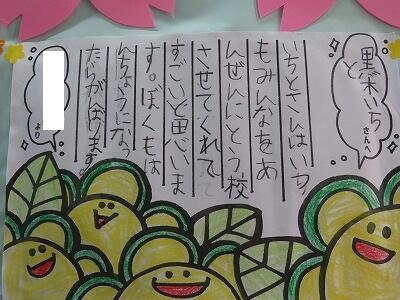 黒木いち
と
さんへ
いちとさんはいつ
もみんなをあ
んぜんにとう校
させてくれて
すごいと思いま
す。ぼくもは
んちょうになっ
たらがんばります。
より